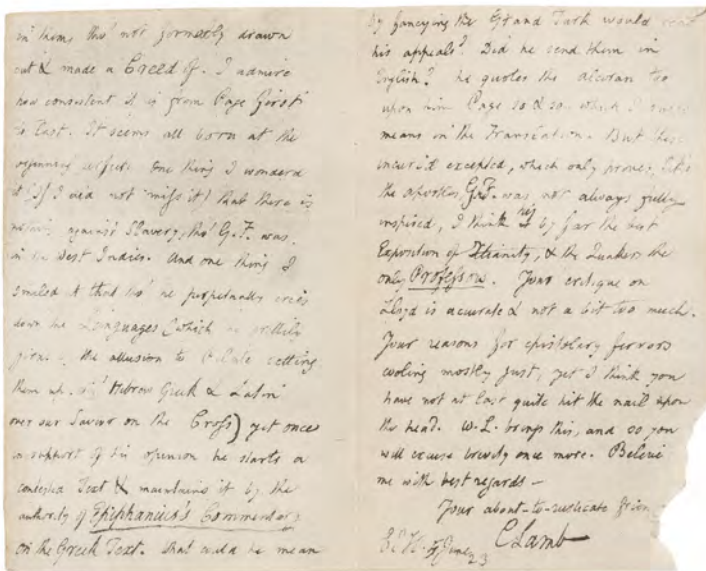 in them, tho' not formally drawn
out & made a Creed of. I admire
how consistent it is from Page first
to last. It seems all born at the
beginning perfect. One thing I wonderd
at (if I did not miss it) that there is
nothing against Slavery, tho' G.F. was
in the West Indies. And one thing I
smiled at that tho' he perpetually cries
down the Languages (which is prettily
given in the allusion to Pilate setting
them up Hebrew Greek & Latin
over our Savior on the Cross) yet once
in support of his opinion he starts a
contested Text & maintains it by the
authority of Epiphanius's Commentary
on the Greek Text. What could he mean
by fancying the Grand Turk would read
his appeals? Did he send them in
English? he quotes the alcoran too
upon him Page so & so, which I
means in the Translation. But these
excepted, which only proves,
the apostles, G.F. was not always fully
inspired, I think his by far the best
Exposition of Xtianity, & the Quakers the
only Professors. Your critique on
Lloyd is accurate & not a bit too much.
Your reasons for epistolary fervors
cooling mostly just, yet I think you
have not at last quite hit the nail upon
the head. W.L. brings this, and so you
will excuse brevity once more. Believe
me with best regards —
Your about-to-rusticate
E.I.H. June 23
C Lamb